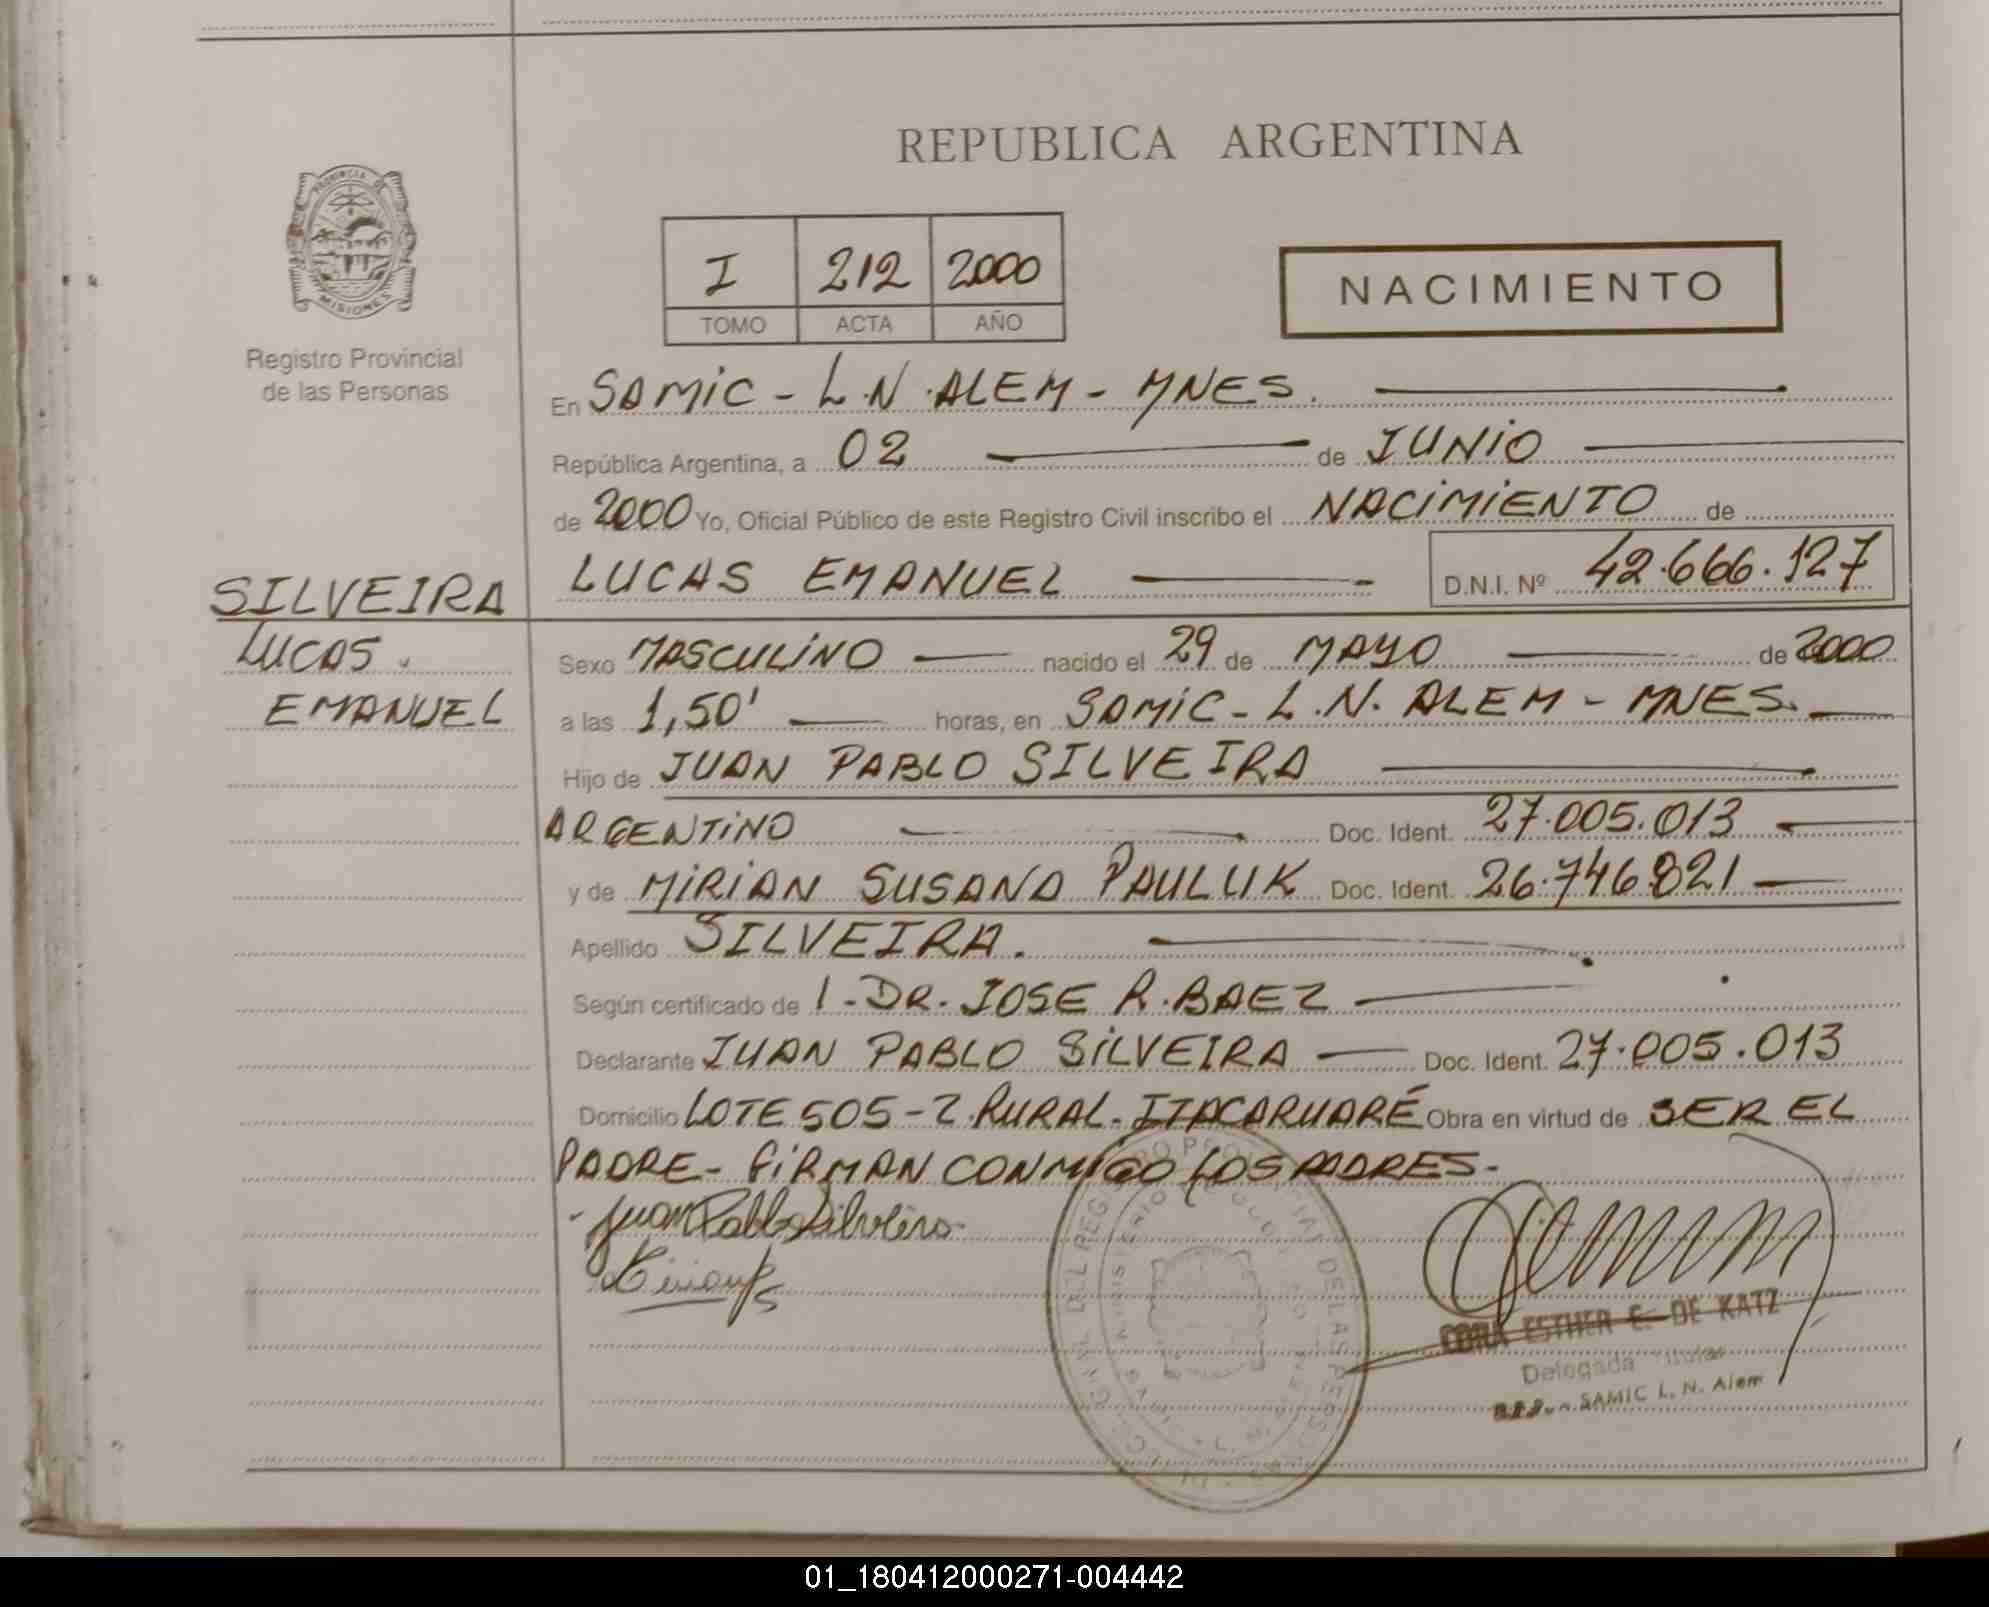 REPUBLICA ARGENTINA
PROVINCIA DE
MISIONES
Registro Provincial
de las Personas
I 212 2000
TOMO ACTA AÑO
NACIMIENTO
En SAMIC - L.N. ALEM - MNES.
República Argentina, a 02 de JUNIO
de 2000 Yo, Oficial Público de este Registro Civil inscribo el NACIMIENTO de
LUCAS EMANUEL D.N.I. Nº 42.666.127
SILVEIRA
LUCAS
EMANUEL
Sexo MASCULINO nacido el 29 de MAYO de 2000
a las 1,50' horas, en SAMIC - L.N. ALEM - MNES.
Hijo de JUAN PABLO SILVEIRA
ARGENTINO Doc. Ident. 27.005.013
y de MIRIAN SUSANA PAULUK Doc. Ident. 26.746.821
Apellido SILVEIRA.
Según certificado de 1 - DR. JOSE R. BAEZ
Declarante JUAN PABLO SILVEIRA Doc. Ident. 27.005.013
Domicilio LOTE 505 - Z. RURAL - ITACARUARÉ Obra en virtud de SER EL
PADRE - FIRMAN CONMIGO LOS PADRES -
Juan Pablo Silveira
CORA ESTHER E. DE KATZ
Delegada Titular
SAMIC L. N. Alem
01_180412000271-004442